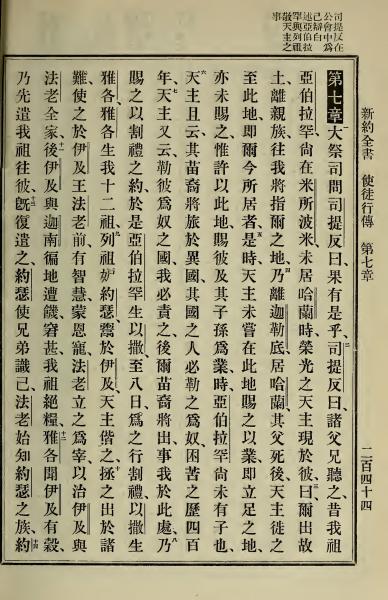 司提反在
公會中為
己辯白
述亞伯拉
罕與列祖
敬天主之
事
新約全書 使徒行傳 第七章 二百四十四
第七章 一大祭司問司提反曰、果有是乎、二司提反曰、諸父兄聽之、昔我祖
亞伯拉罕尚在米所波米未居哈蘭時、榮光之天主現於彼、三曰、爾出故
土、離親族、往我將指爾之地、四乃離迦勒底、居哈蘭、其父死後、天主徙之
至此地、即爾今所居者、五是時、天主未嘗在此地賜之以業、即立足之地、
亦未賜之、惟許以此地、賜彼及其子孫為業、時亞伯拉罕尚未有子也、
六天主且云、其苗裔將旅於異國、其國之人必勒之為奴、困苦之、歷四百
年、七天主又云、勒彼為奴之國、我必責之、後爾苗裔將出、事我於此處、八乃
賜之以割禮之約、於是亞伯拉罕生以撒、至八日、為之行割禮、以撒生
雅各、雅各生我十二祖、九列祖妒約瑟、鬻於伊及、天主偕之、十拯之出於諸
難、使之於伊及王法老前、有智慧、蒙恩寵、法老立之為宰、以治伊及、與
法老全家、十一後伊及與迦南徧地遭饑、窘甚、我祖絕糧、十二雅各聞伊及有穀、
乃先遣我祖往彼、十三旣復遣之、約瑟使兄弟識己、法老始知約瑟之族、十四約